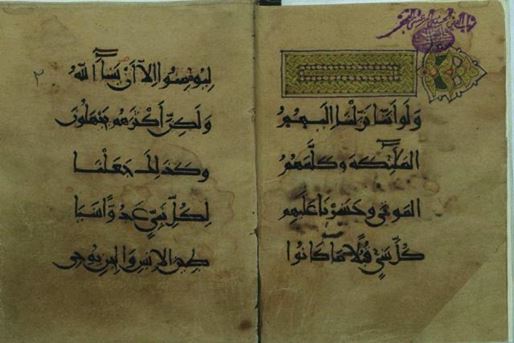 وَلَو أَنَّنا نَزَّلنا إِلَيهِمُ
المَلٰئِكَةَ وَكَلَّمَهُمُ
المَوتى وَحَشَرنا عَلَيهِم
كُلَّ شَيءٍ قُبُلًا ما كانُوا
٢
لِيُؤمِنُوا إِلّا أَن يَشاءَ اللهُ
وَلكِنَّ أَكثَرَهُم يَجهَلُونَ
وَكَذلِكَ جَعَلنا
لِكُلِّ نَبِيٍّ عَدُوًّا شَيا
طِينَ الإِنسِ وَالجِنِّ يُوحِي